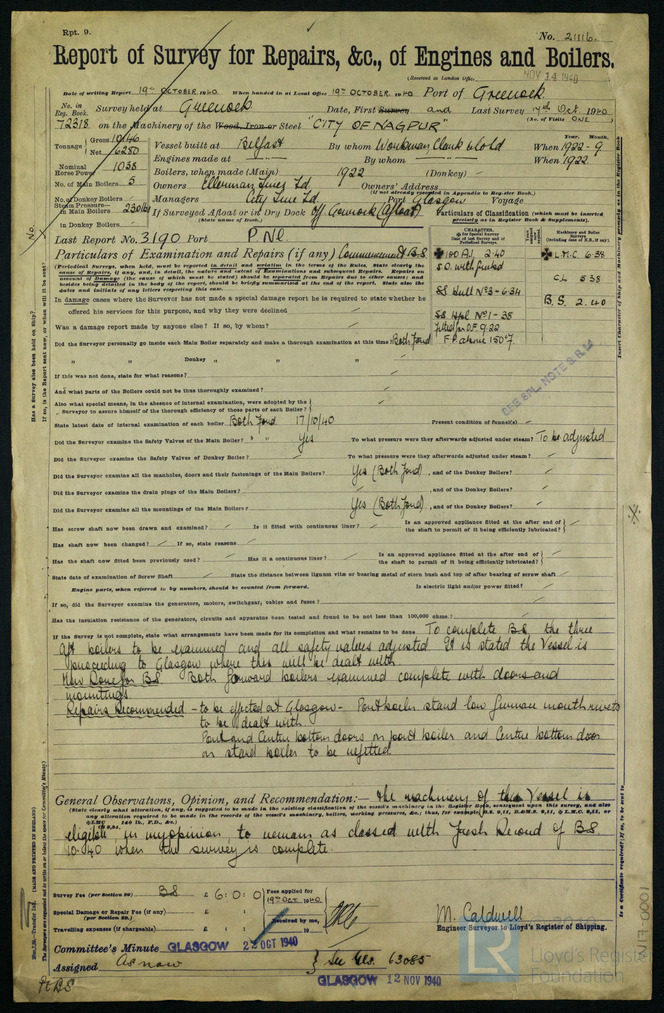 Rpt. 9.
No. 21116.
Report of Survey for Repairs, &c., of Engines and Boilers.
(Received in London Office NOV 14 1940
Date of writing Report 19th OCTOBER 1940 When handed in at Local Office 19th OCTOBER 1940 Port of Greenock
No. in Reg. Book. Survey held at Greenock Date, First Survey and Last Survey 17th Oct 1940
(No. of Visits ONE)
72318 on the Machinery of the Wood, Iron or Steel "CITY OF NAGPUR"
Tonnage Gross 10146 Net 6280 Vessel built at Belfast By whom Workman Clark & Co Ld Year. Month. When 1922 - 9
Engines made at By whom When 1922
Nominal Horse Power 1038 Boilers, when made (Main) 1922 (Donkey)
No. of Main Boilers 5 Owners Ellerman Lines Ld Owners' Address
(if not already recorded in Appendix to Register Book.)
No. of Donkey Boilers Managers City Line Ld Port Glasgow Voyage
Steam Pressure in Main Boilers 230 lb If Surveyed Afloat or in Dry Dock off Greenock (Afloat)
(State name of Dock.)
in Donkey Boilers
Particulars of Classification (which must be inserted precisely as in the Register Book & Supplements).
Last Report No. 3190 Port P. Nl
Particulars of Examination and Repairs (if any) Commencement B.S
CHARACTER.
Machinery and Boiler Surveys (including date of N.B., if any)
100 A1 2.40
L.M.C. 6.38
S.O. with freeb'd
CL 5.38
SS Hull No 3 - 6.34
B.S. 2.40
Fitted for O.F. 9.22
F.P. above 150°F.
SEE SPL. NOTE S.R.L.
In damage cases where the Surveyor has not made a special damage report he is required to state whether he
offered his services for this purpose, and why they were declined
Was a damage report made by anyone else? If so, by whom?
Did the Surveyor personally go inside each Main Boiler separately and make a thorough examination at this time? Both Ford
" " Donkey " " "
If this was not done, state for what reasons?
And what parts of the Boilers could not be thus thoroughly examined?
Also what special means, in the absence of internal examination, were adopted by the
Surveyor to assure himself of the thorough efficiency of those parts of each Boiler?
State latest date of internal examination of each boiler Both Ford 17/10/40 Present condition of funnel(s)
Did the Surveyor examine the Safety Valves of the Main Boiler? " " Yes To what pressure were they afterwards adjusted under steam? To be adjusted
Did the Surveyor examine the Safety Valves of Donkey Boiler? To what pressure were they afterwards adjusted under steam?
Did the Surveyor examine all the manholes, doors and their fastenings of the Main Boilers? Yes (Both Ford), and of the Donkey Boilers?
Did the Surveyor examine the drain plugs of the Main Boilers? , and of the Donkey Boilers?
Did the Surveyor examine all the mountings of the Main Boilers? Yes (Both Ford), and of the Donkey Boilers?
Has screw shaft now been drawn and examined? Is it fitted with continuous liner? Is an approved appliance fitted at the after end of the shaft to permit of it being efficiently lubricated?
Has shaft now been changed? If so, state reasons
Has the shaft now fitted been previously used? Has it a continuous liner? Is an approved appliance fitted at the after end of the shaft to permit of it being efficiently lubricated?
State date of examination of Screw Shaft State the distance between lignum vitæ or bearing metal of stern bush and top of after bearing of screw shaft
Engine parts, when referred to by numbers, should be counted from forward. Is electric light and/or power fitted?
If so, did the Surveyor examine the generators, motors, switchgear, cables and fuses?
Has the insulation resistance of the generators, circuits and apparatus been tested and found to be not less than 100,000 ohms?
If the Survey is not complete, state what arrangements have been made for its completion and what remains to be done. To complete B.S. the three
aft boilers to be examined and all safety valves adjusted. It is stated the Vessel is
proceeding to Glasgow where this will be dealt with
Now Done for B.S. Both forward boilers examined complete with doors and
mountings.
Repairs Recommended - to be effected at Glasgow - Port boiler, starb'd low furnace mouth rivets
to be dealt with.
Port and Centre bottom doors on port boiler and Centre bottom door
on starb'd boiler to be refitted
General Observations, Opinion, and Recommendation:— The machinery of this Vessel is
eligible in my opinion, to remain as classed with fresh Record of B.S
10-40 when the survey is complete.
Survey Fee (per Section 29) BS £ 6 : 0 : 0 Fees applied for 19th OCT 1940
Special Damage or Repair Fee (if any) (per Section 29.) £ : : Received by me,
Travelling expenses (if chargeable) £ : : 19
M. Caldwell
Engineer Surveyor to Lloyd's Register of Shipping.
Committee's Minute GLASGOW 22 OCT 1940
Assigned As now } See Gls. 63085
GLASGOW 12 NOV 1940
Lloyd's Register
Foundation